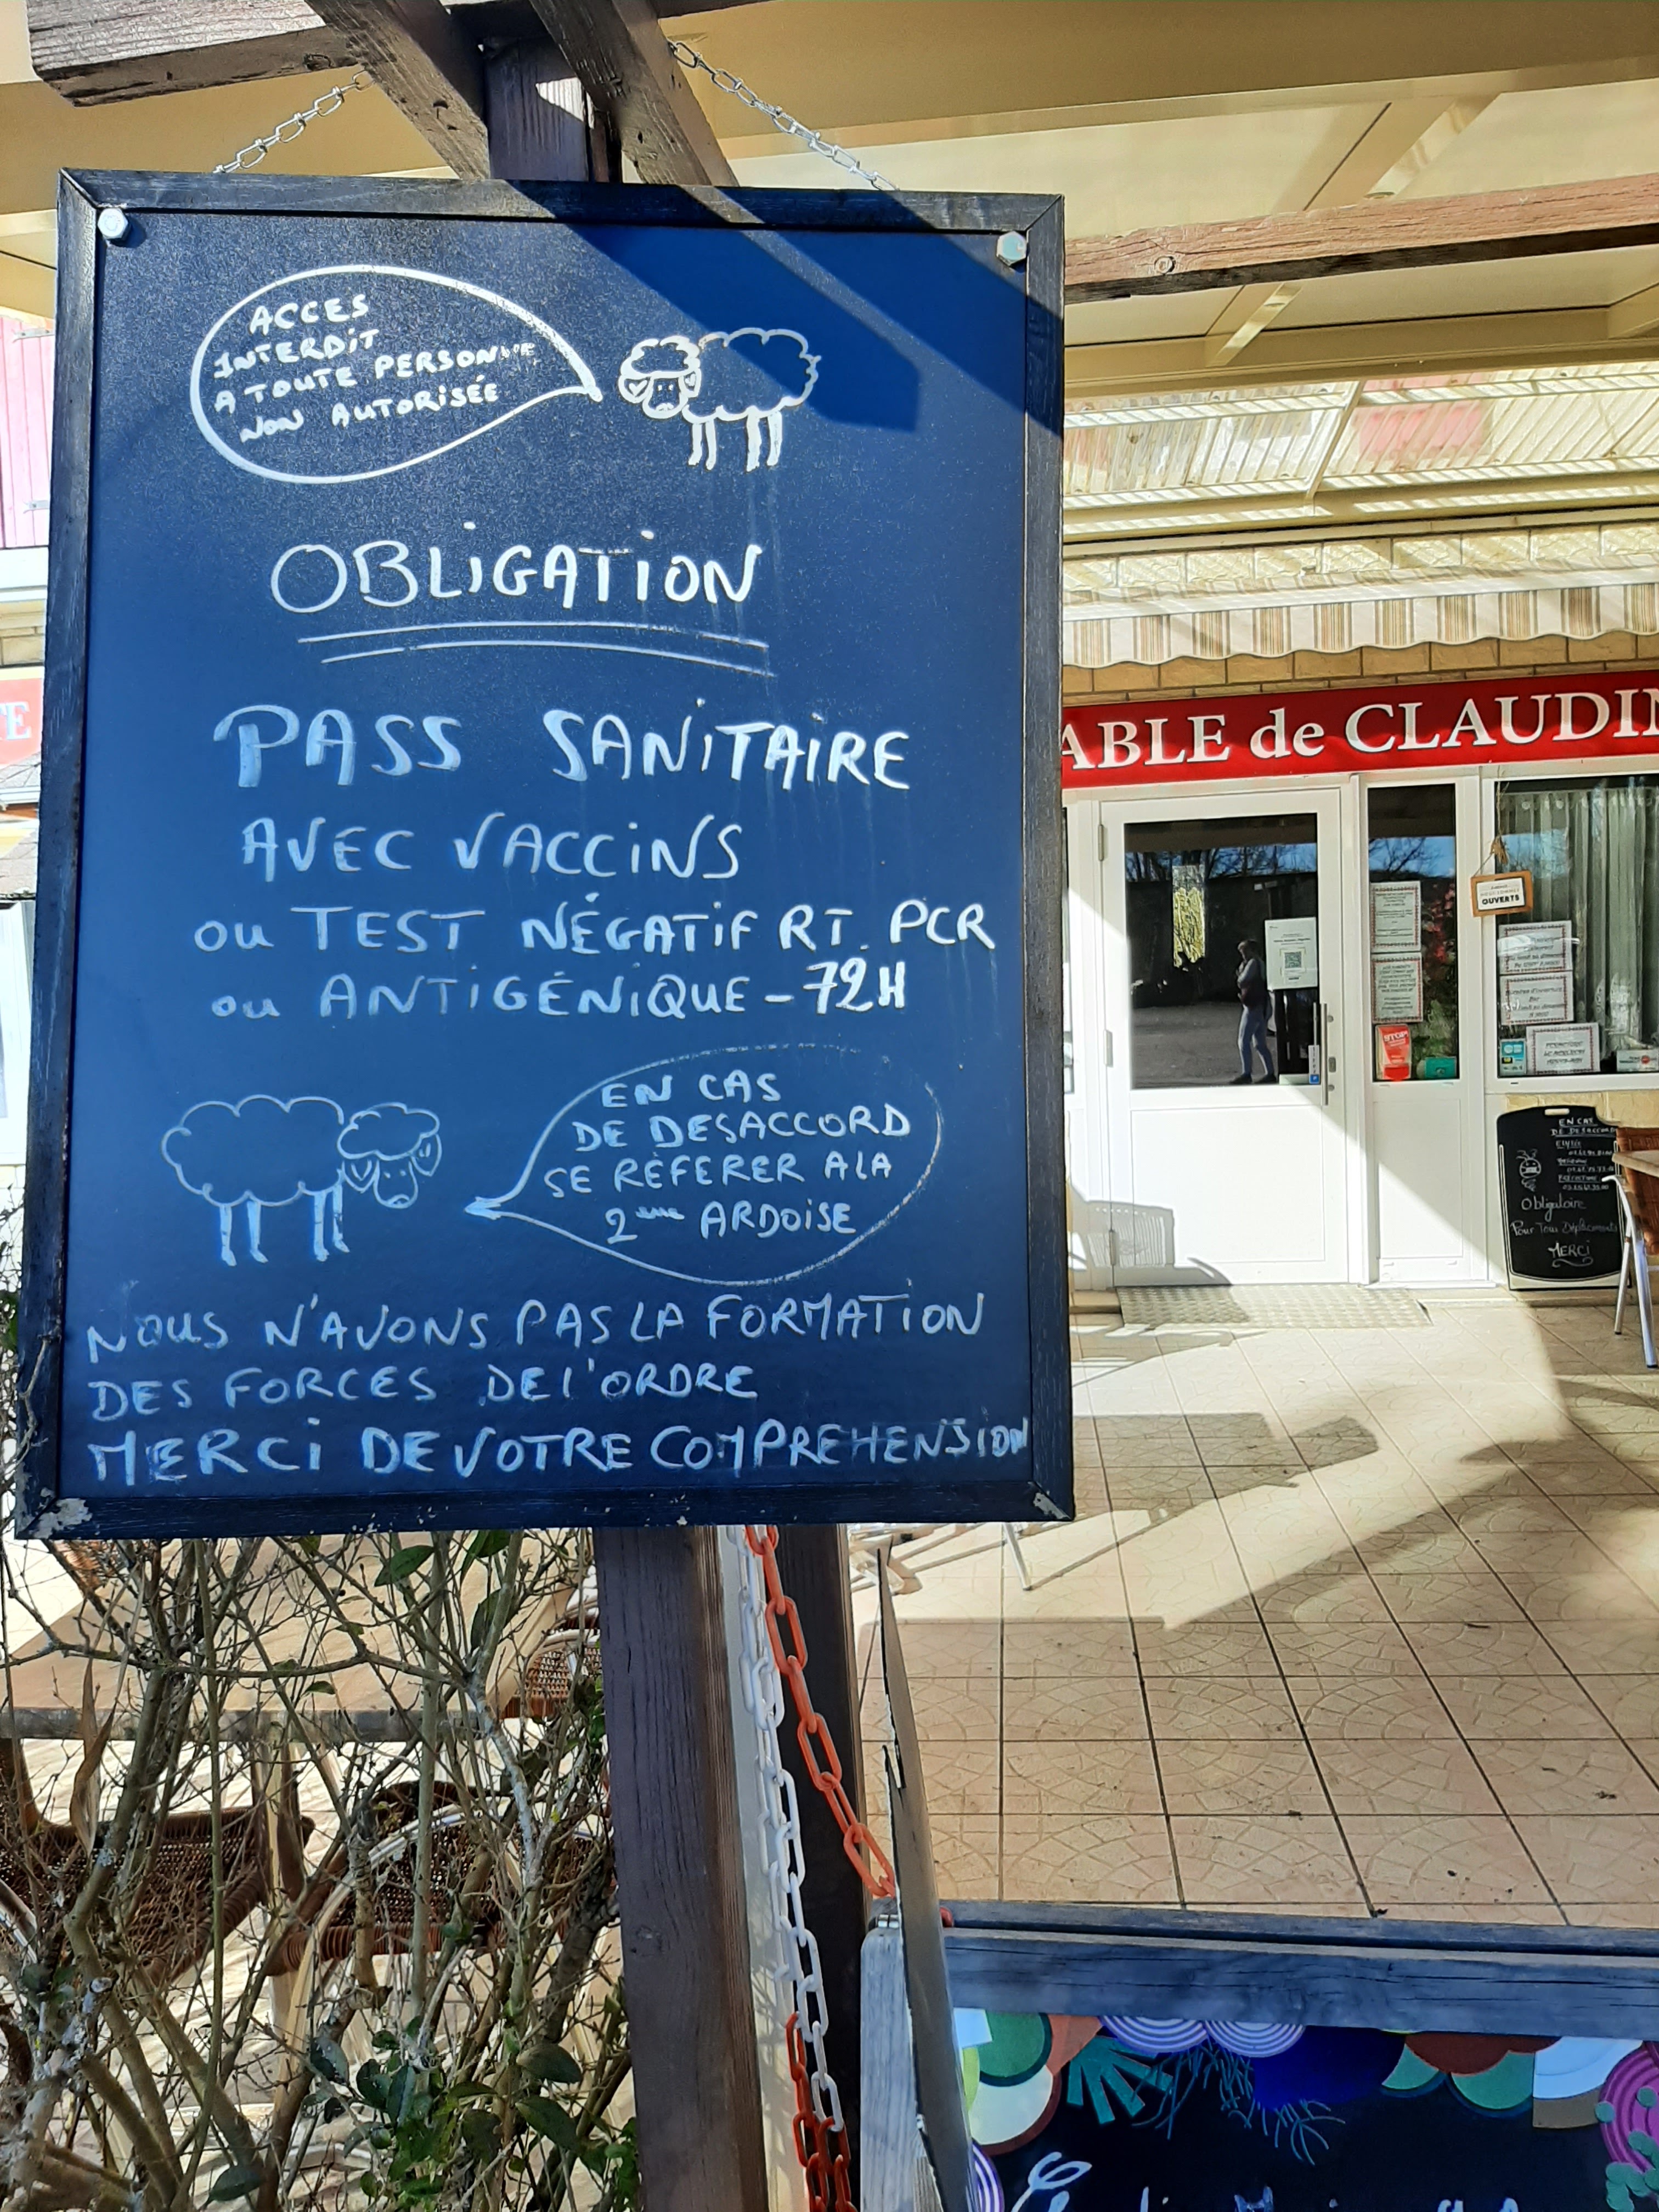 ACCES
INTERDIT
A TOUTE PERSONNE
NON AUTORISÉE
OBLIGATION
PASS SANITAIRE
AVEC VACCINS
ou TEST NÉGATIF RT. PCR
ou ANTIGÉNIQUE - 72H
EN CAS
DE DESACCORD
SE RÉFERER A LA
2eme ARDOISE
NOUS N'AVONS PAS LA FORMATION
DES FORCES DE l'ORDRE
MERCI DE VOTRE COMPREHENSION
TE
ABLE de CLAUDIN
OUVERTS
STOP
EN CAS
DE DESACCORD
Obligatoire
Pour Tous Déplacements
MERCI